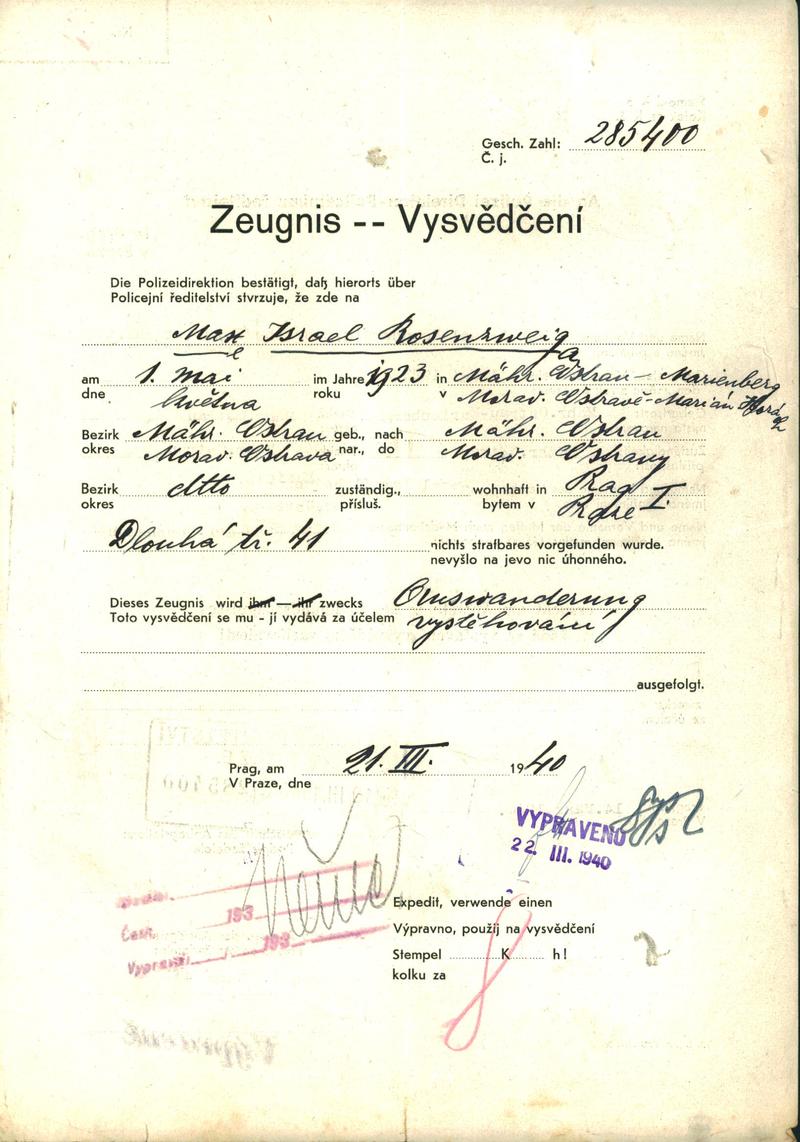 Gesch. Zahl: 285400
Č. j.
Zeugnis -- Vysvědčení
Die Polizeidirektion bestätigt, daß hierorts über
Policejní ředitelství stvrzuje, že zde na
Max Israel Rosenzweig
e a
am 1. Mai im Jahre 1923 in Mähr. Ostrau - Marienberg
dne května roku v Morav. Ostravě - Marián. Horách
Bezirk Mähr. Ostrau geb., nach Mähr. Ostrau
okres Morav. Ostrava nar., do Morav. Ostravy
Bezirk dtto zuständig., wohnhaft in Prag I.
okres přísluš. bytem v Praze
Dlouhá tř. 41 nichts strafbares vorgefunden wurde.
nevyšlo na jevo nic úhonného.
Dieses Zeugnis wird ihm — ihr zwecks Auswanderung
Toto vysvědčení se mu - jí vydává za účelem vystěhování
ausgefolgt.
Prag, am 21. III. 1940
V Praze, dne
VYPRAVENO
22. III. 1940
Expedit, verwende einen
Čten. 193
Výpravno, použij na vysvědčení
Vypraveno 193
Stempel K h!
kolku za